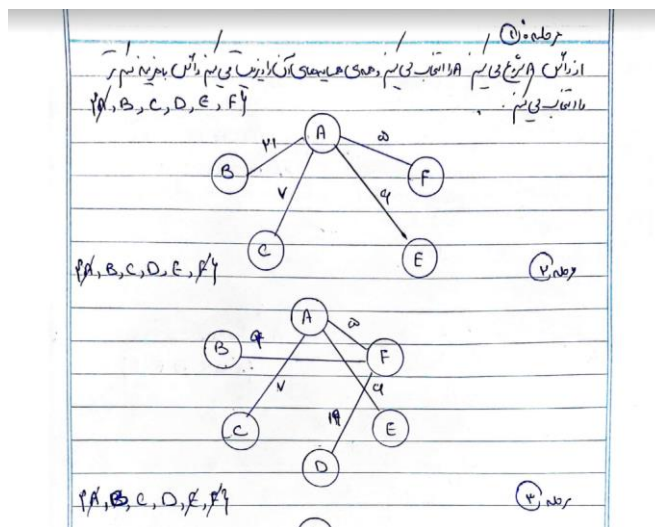 مرحله ①:
از رأس A شروع می کنیم A را انتخاب می کنیم همه ی همسایه های آن را لیست می کنیم رأس با هزینه کم تر
را انتخاب می کنیم.
{A, B, C, D, E, F}
A
۲۱ ۵
B F
۷ ۹
C E
{A, B, C, D, E, F} مرحله ②
A
۵
B F
۷ ۹
۱۹
C E
D
{A, B, C, D, E, F} مرحله ③